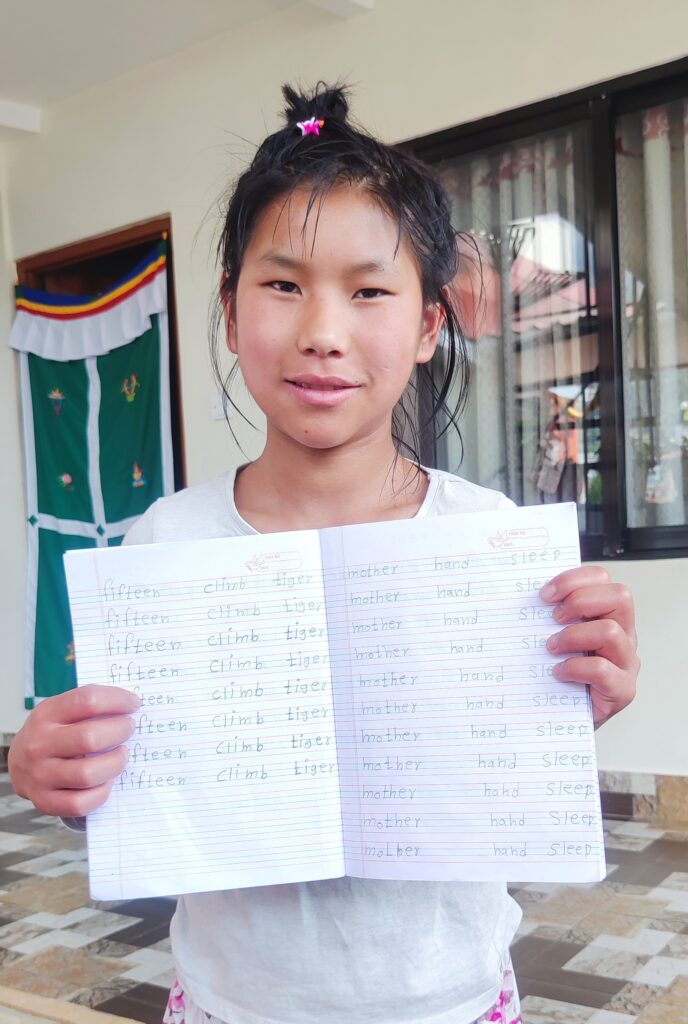 PAGE NO.
DATE:
fifteen climb tiger
fifteen climb tiger
fifteen climb tiger
fifteen climb tiger
teen climb tiger
fteen climb tiger
fteen climb tiger
fifteen climb tiger
PAGE NO.
DATE:
mother hand sleep
mother hand slee
mother hand sle
mother hand
mother hand slee
mother hand sleep
mother hand sleep
mother hand sleep
mother hand sleep
mother hand sleep
molber hand sleep